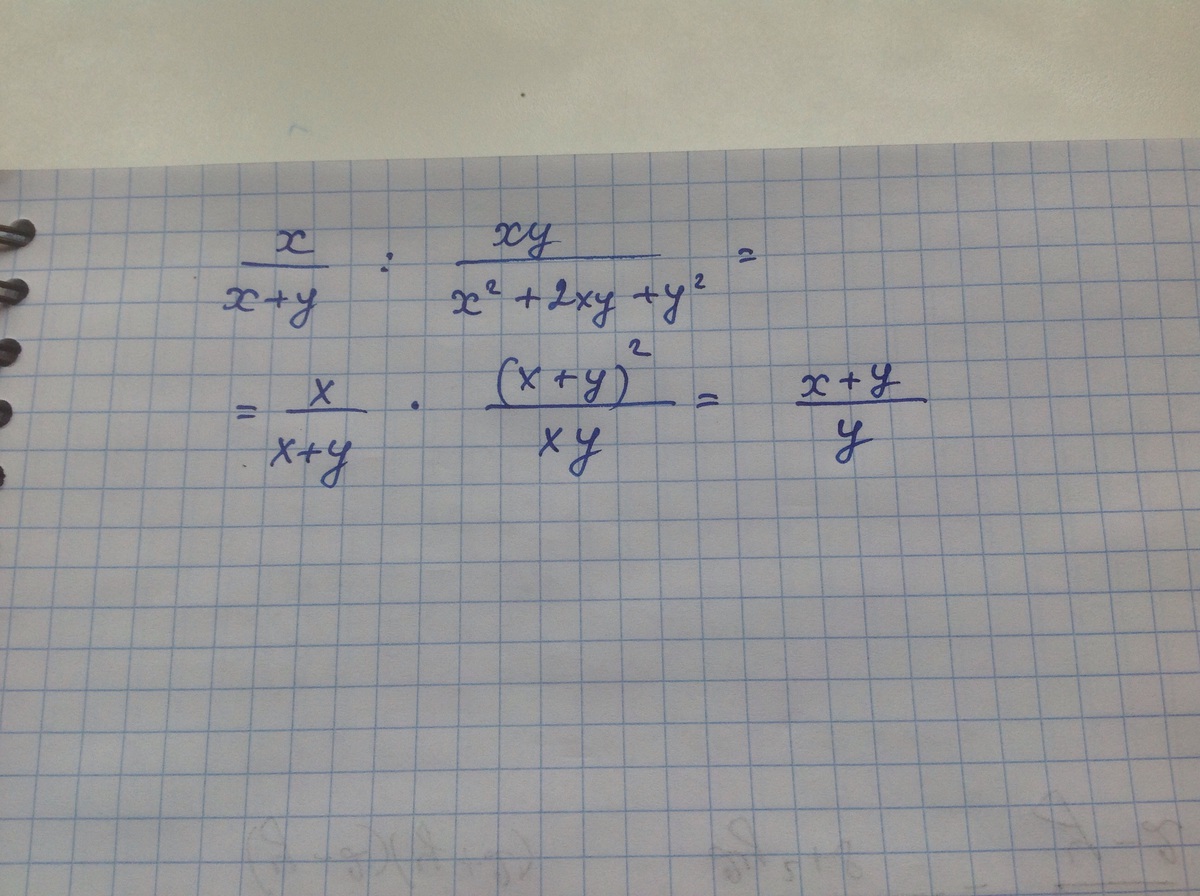 x/(x+y) : xy/(x² + 2xy + y²) =
= x/(x+y) · (x+y)²/(xy) = (x+y)/y